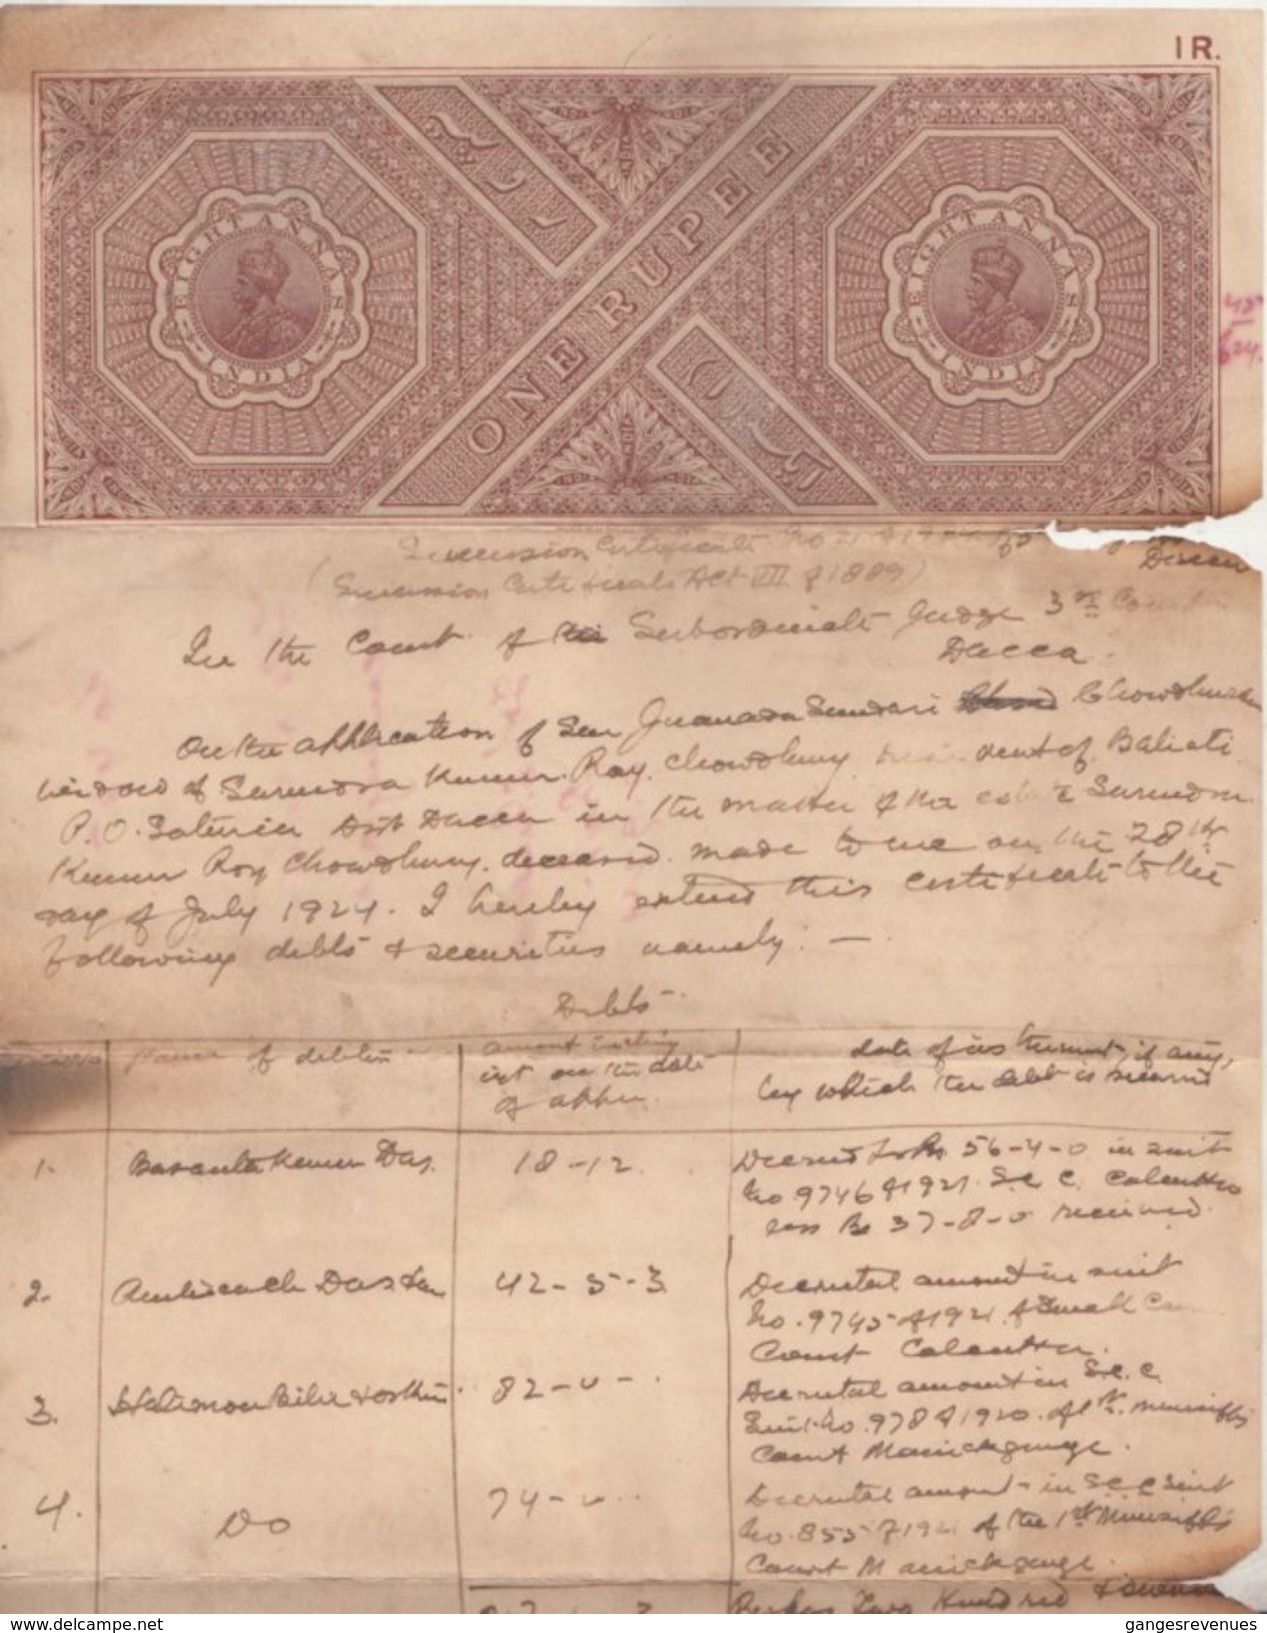 1 R.
EIGHT ANNAS INDIA
ONE RUPEE
ایک روپیہ
EIGHT ANNAS INDIA
45
624.
Succession Certificate No 21 of 1924
Dacca
(Succession Certificate Act VII of 1889)
In the Court of the Subordinate Judge 3rd Court
Dacca.
On the application of Sm Gnanada Sundari Chowdhurani
widow of Surendra Kumar Ray Chowdhury resident of Baliati
P.O. Saturia Dist Dacca in the matter of the estate Surendra
Kumar Roy Chowdhury deceased made to me on the 28th
day of July 1924. I hereby extend this certificate to the
following debts & securities namely: —
Debts
Name of debtor
amount including
int on the date
of appln.
date of instrument, if any,
by which the debt is secured
1.
Basanta Kumar Das.
18-12
Decree for Rs 56-4-0 in suit
No 9746 of 1921 S.C.C. Calcutta
less Rs 37-8-0 received.
2.
Das
42-5-3
Decretal amount in suit
No. 9745 of 1921 of Small Cause
Court Calcutta.
3.
Bibi & others
82-0-
Decretal amount in S.C.C.
Suit No. 978 of 1920 of 1st Munsiff's
Court Manickgunge.
4.
Do
74-0
Decretal amount in S.C.C suit
No. 855 of 1921 of the 1st Munsiff's
Court Manickgunge.
217-1-3
Rupees Two Hundred & seventeen
delcampe.net
gangesrevenues